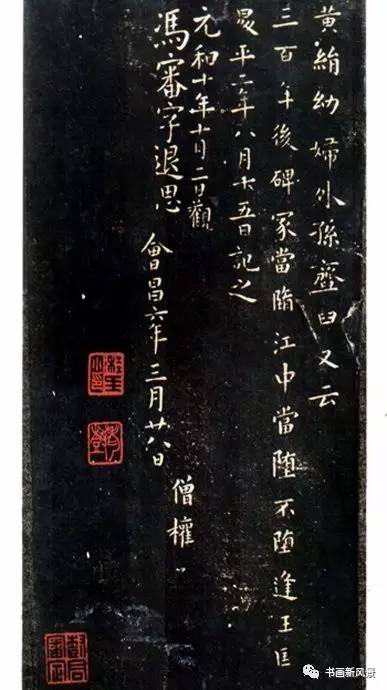 黃絹幼婦外孫𦈐臼又云
三百年後碑冢當隨江中當墮不墮逢王匡
昇平二年八月十五日記之
元和十年十月二日觀
馮審字退思
會昌六年三月廿八日
僧權
书画新风景